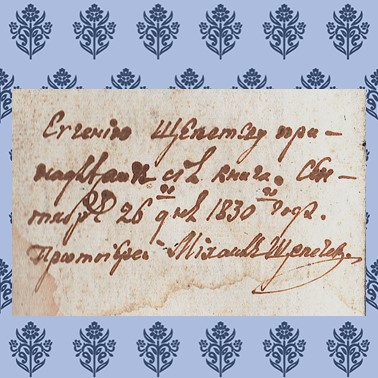 Евгенію Щепетеву при-
надлежитъ сія книга. Сен-
тября 26 дня 1830 года.
Протоіерей Михаилъ